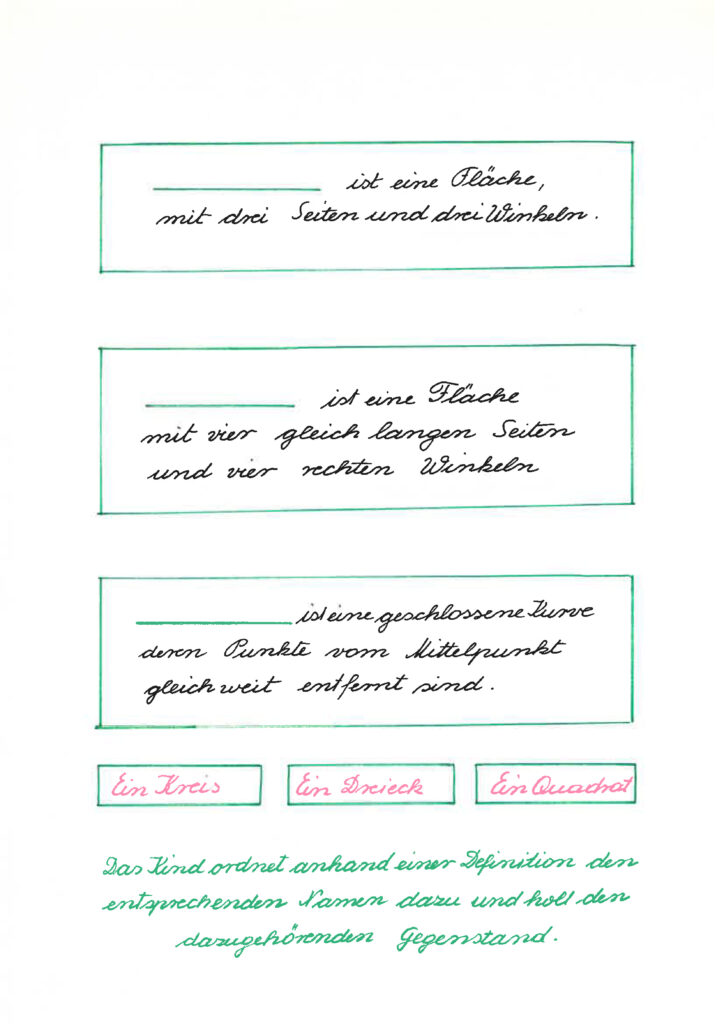 __________ ist eine Fläche,
mit drei Seiten und drei Winkeln.
__________ ist eine Fläche
mit vier gleich langen Seiten
und vier rechten Winkeln
__________ ist eine geschlossene Kurve
deren Punkte vom Mittelpunkt
gleich weit entfernt sind.
Ein Kreis Ein Dreieck Ein Quadrat
Das Kind ordnet anhand einer Definition den
entsprechenden Namen dazu und holt den
dazugehörenden Gegenstand.